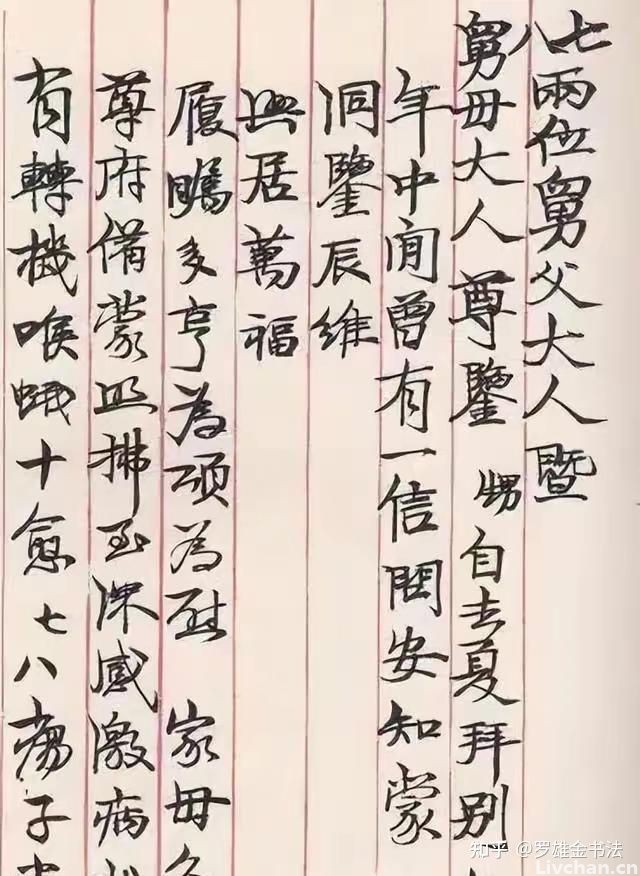 七八兩位舅父大人暨
舅母大人尊鑒 甥自去夏拜别
年中間曾有一信問安知蒙
洞鑒辰維
興居萬福
履矚多亨為頌為慰 家母
尊府備蒙照拂至深感激病
有轉機喉蛾十愈七八瘍子
知乎 @罗雄金书法
Livchan.cn